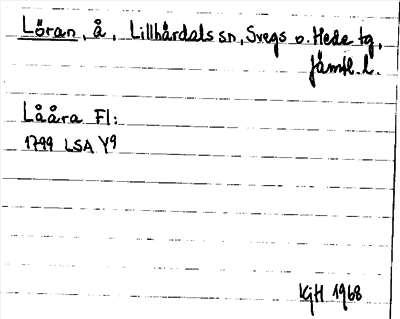 Löran, å, Lillhärdals sn, Svegs o. Hede tg,
Jämtl. l.
Lååra Fl:
1799 LSA Y9
KjH 1968